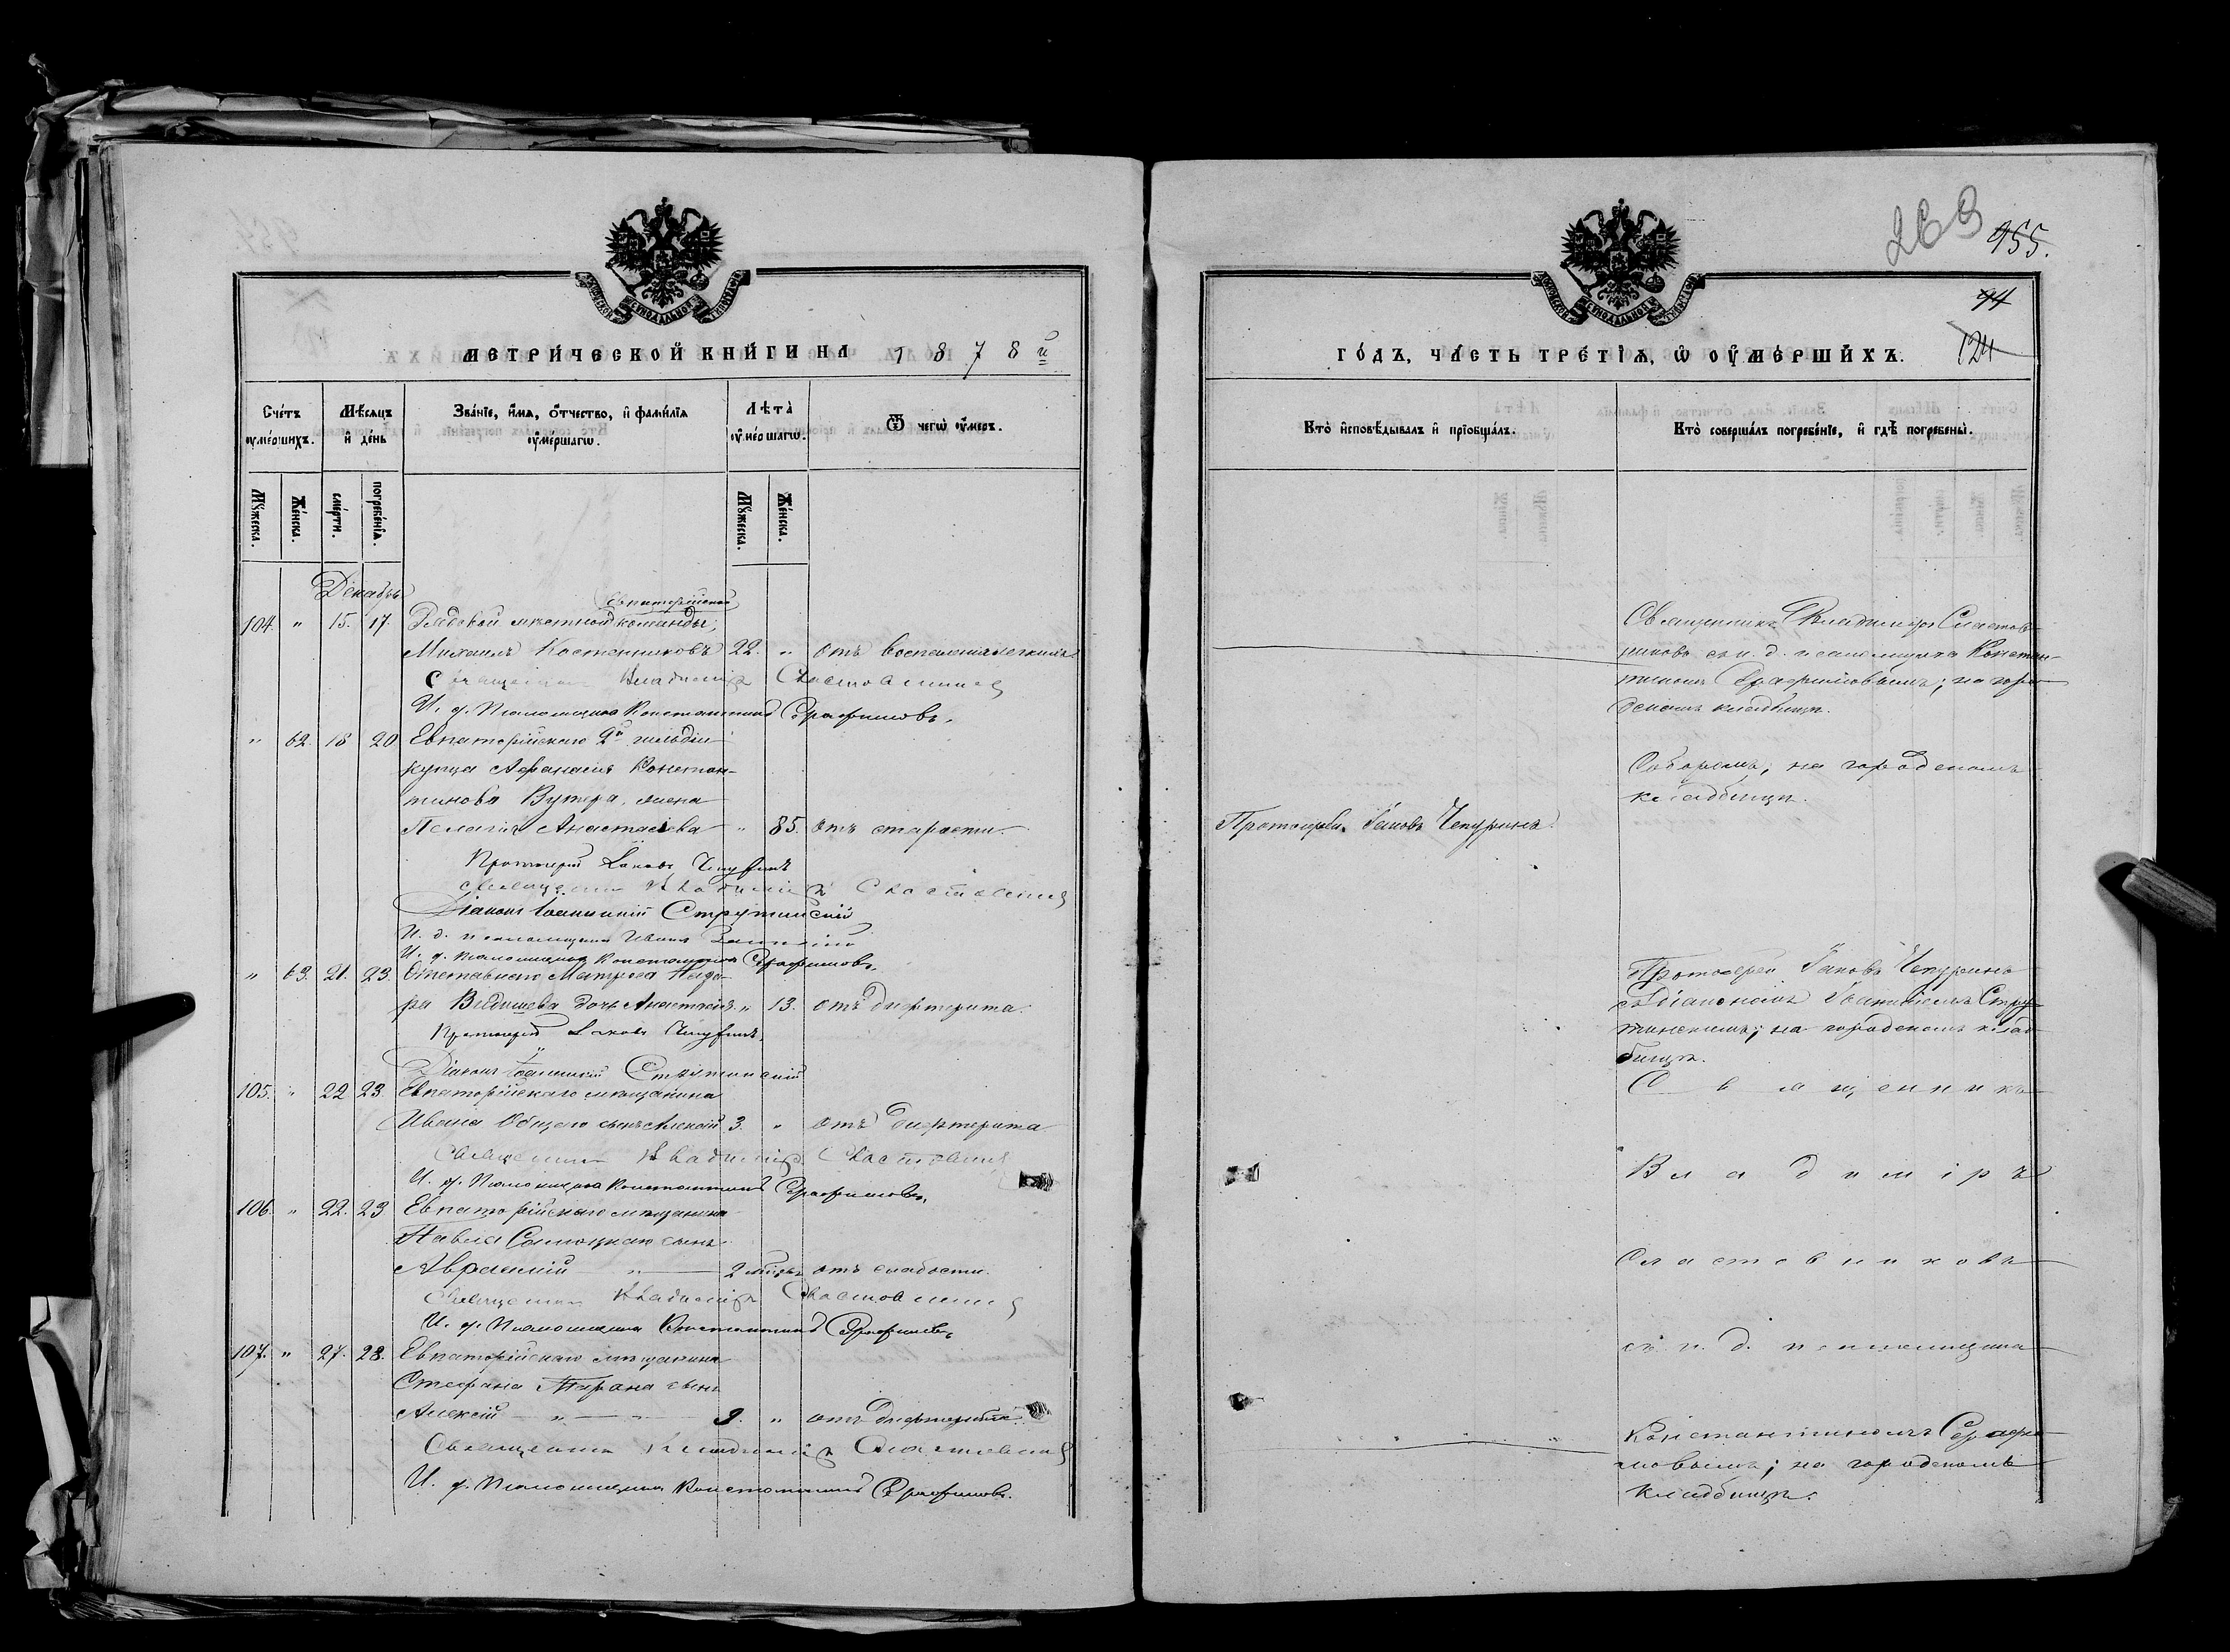 МЕТРИЧЕСКОЙ КНИГИ НА 1878й
Счетъ умершихъ.
Мѣсяцъ и день
Званіе, имя, отчество, и фамилія умершагѡ.
Лѣта умершагѡ.
Ѿ чегѡ умеръ.
Мужеска.
Женска.
смерти.
погребенія.
Мужеска.
Женска.
Декабрь
Евпаторійской
104. " 15. 17. Рядовой мѣстной команды,
Михаилъ Костенниковъ 22. " отъ воспаленія легкихъ
Священникъ Владиміръ Сластовниковъ
И. д. Псаломщика Константинъ Серафимовъ.
" 62. 18 20 Евпаторійскаго 2й гильдіи
купца Афанасія Констан-
тинова жена
Пелагія Анастасіева " 85. отъ старости.
Протоіерей Іаковъ Чепуринъ
Священникъ Владиміръ Сластовниковъ
Діаконъ Іоанникій Струтинскій
И. д. псаломщика Иванъ
И. д. Псаломщика Константинъ Серафимовъ.
" 63. 21. 23. Отставнаго Матроса
дочь Анастасія. " 13. отъ дифтерита.
Протоіерей Іаковъ Чепуринъ.
Діаконъ Іоанникій Струтинскій
105. " 22 23. Евпаторійскаго мѣщанина
Ивана Общаго сынъ Алексій 3. " отъ дифтерита
Священникъ Владиміръ Сластовниковъ
И. д. Псаломщика Константинъ Серафимовъ.
106. " 22. 23 Евпаторійскаго мѣщанина
Павла сынъ
" 2 мѣсяц. отъ слабости.
Священникъ Владиміръ Сластовниковъ
И. д. Псаломщика Константинъ Серафимовъ.
107. " 27. 28. Евпаторійскаго мѣщанина
Стефана Тарана сынъ
Алексій " " 3. " отъ дифтерита.
Священникъ Владиміръ Сластовниковъ
И. д. Псаломщика Константинъ Серафимовъ.
263 955.
94
124
ГОДЪ, ЧАСТЬ ТРЕТІѦ, Ѡ УМЕРШИХЪ.
Кто исповѣдывалъ и пріобщалъ.
Кто совершалъ погребеніе, и гдѣ погребены.
Священникъ Владиміръ Сластов-
никовъ съ и. д. псаломщика Констан-
тиномъ Серафимовымъ; на город-
скомъ кладбищѣ.
Соборомъ; на городскомъ
кладбищѣ.
Протоіерей Іаковъ Чепуринъ.
Протоіерей Іаковъ Чепуринъ
съ діакономъ Іоанникіемъ Стру-
тинскимъ; на городскомъ клад-
бищѣ.
Священникъ
Владиміръ
Сластовниковъ
съ и. д. псаломщика
Константиномъ Серафи-
мовымъ; на городскомъ
кладбищѣ.